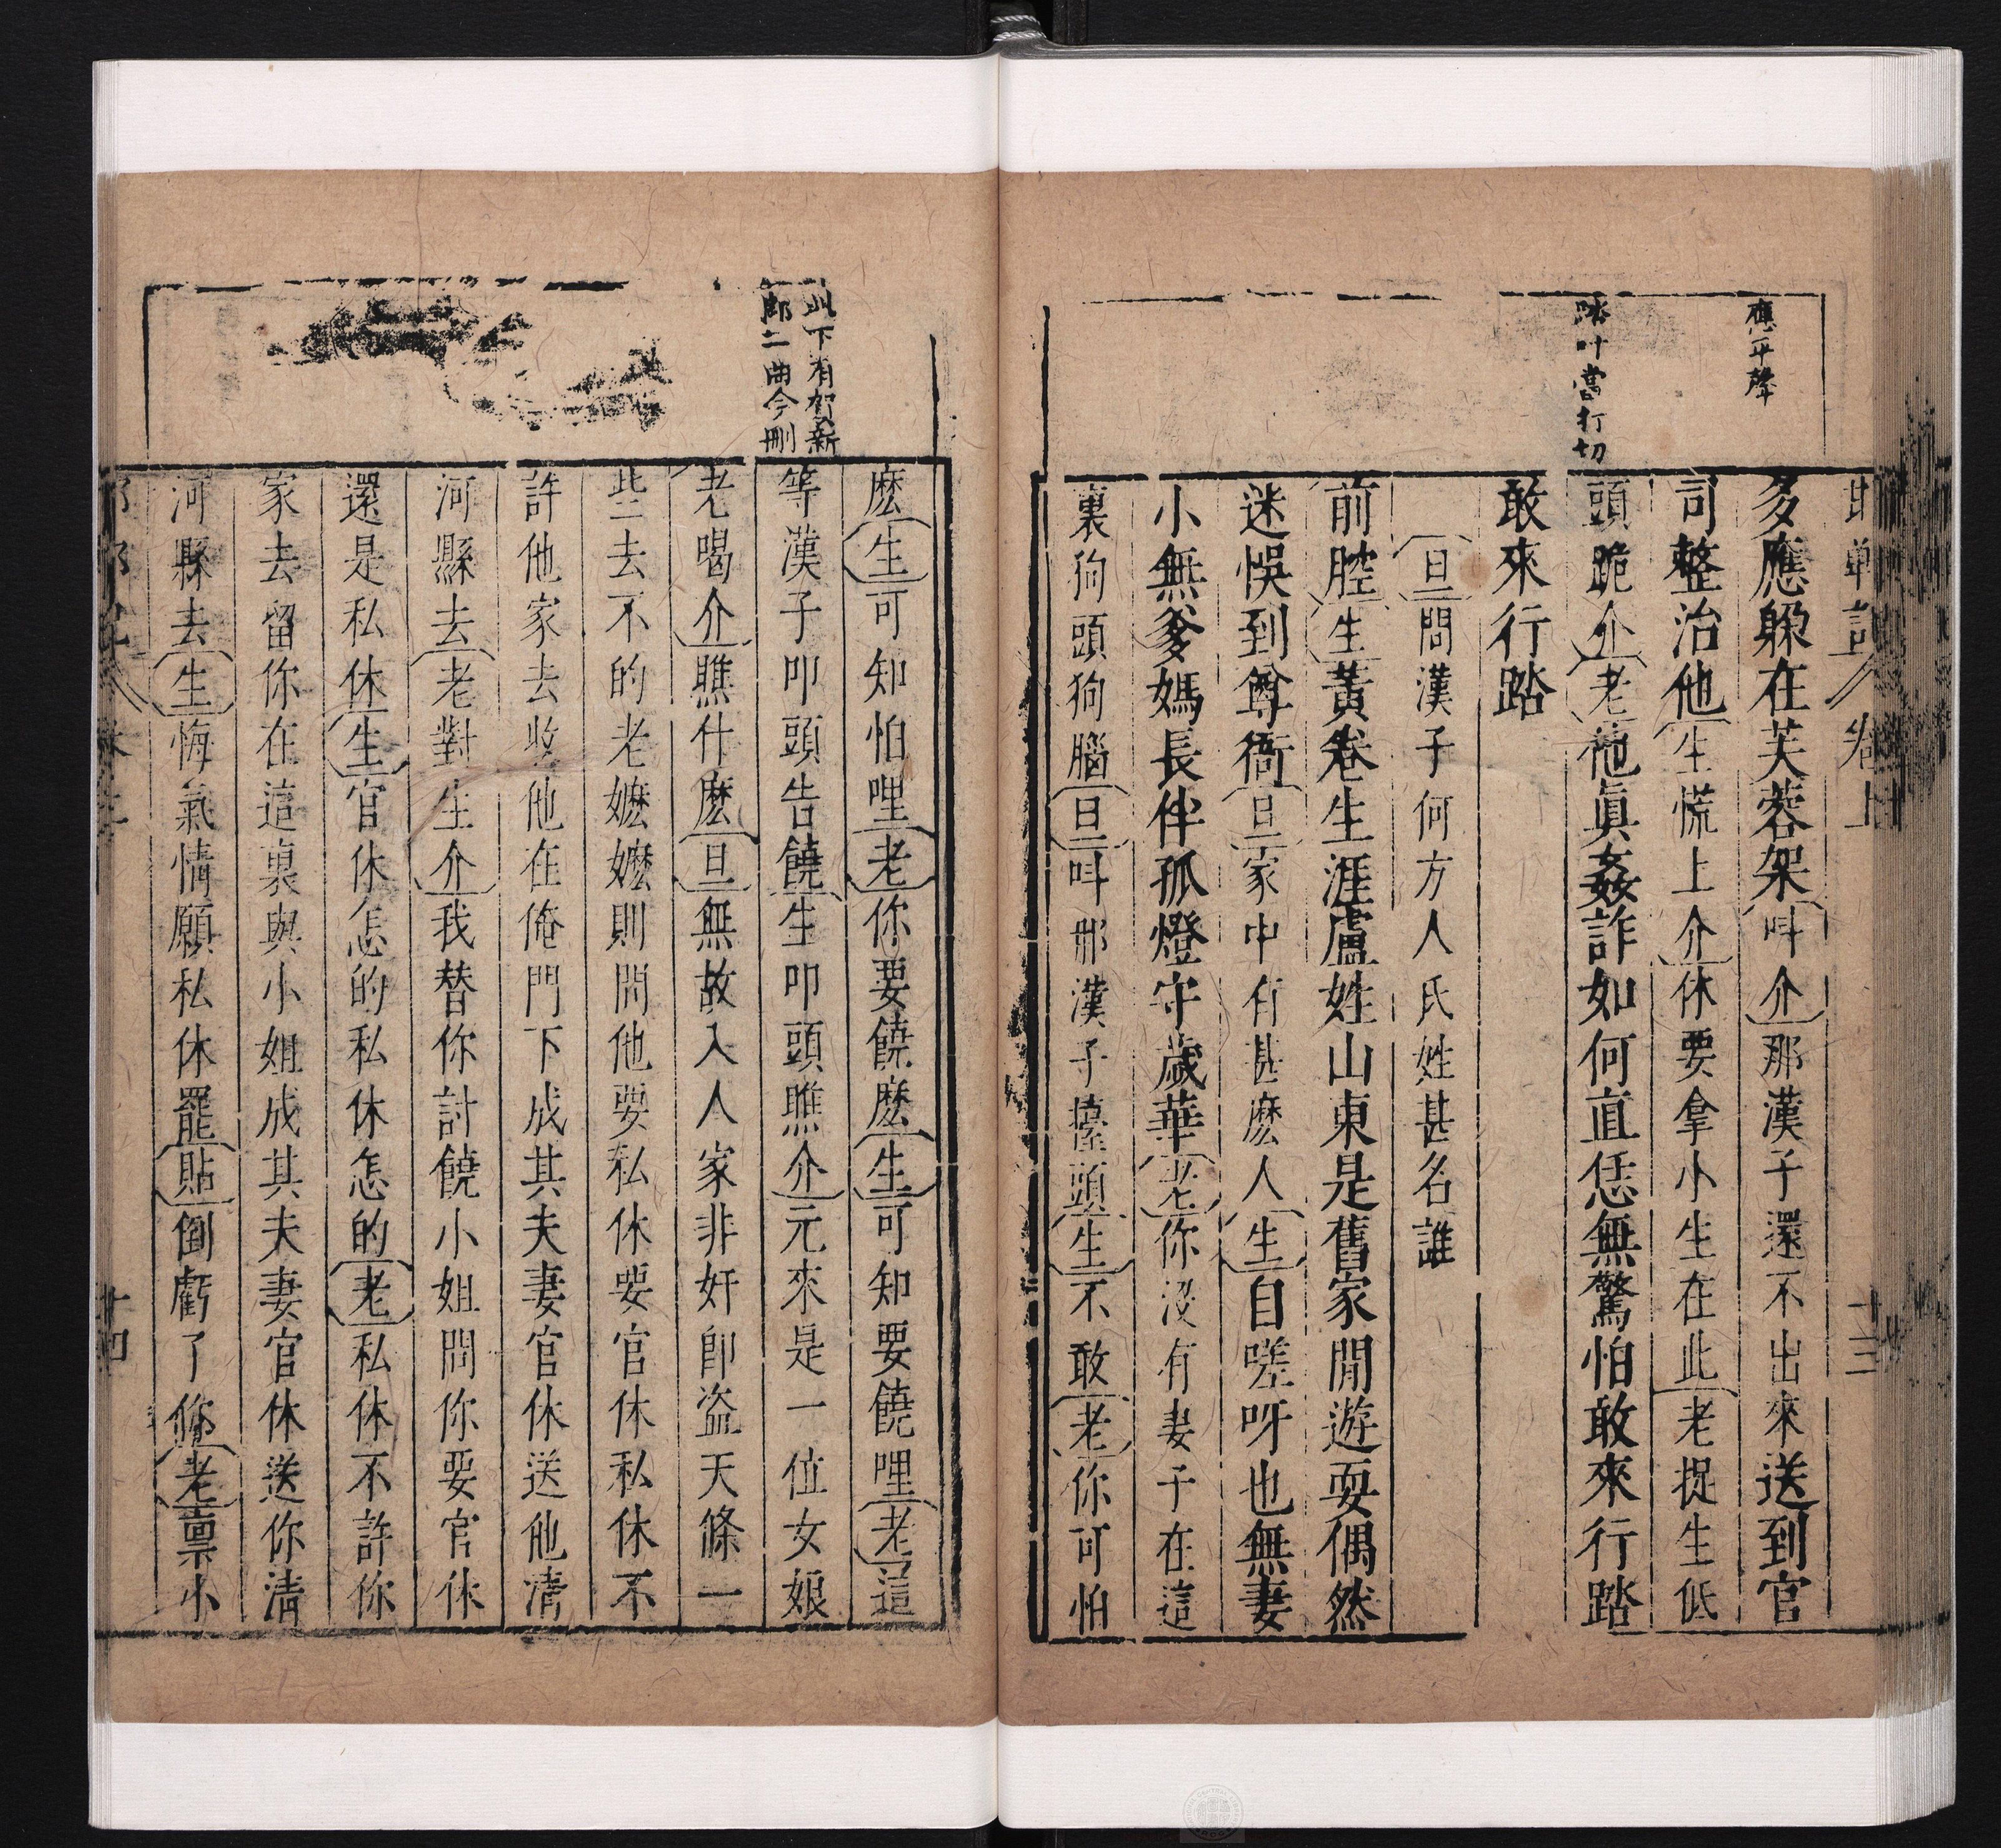 邯鄲記 卷上 十三
應平聲
多應躱在芙蓉架叫介那漢子還不出來送到官
司整治他生慌上介休要拿小生在此老捉生低
踏叶當打切
頭跪介老他眞姦詐如何直恁無驚怕敢來行踏
敢來行踏
旦問漢子何方人氏姓甚名誰
前腔生黃卷生涯盧姓山東是舊家閒遊耍偶然
迷悞到尊衙旦家中有甚麽人生自嗟呀也無妻
小無爹媽長伴孤燈守歲華老你沒有妻子在這
裏狗頭狗腦旦叫那漢子擡頭生不敢老你可怕
麽生可知怕哩老你要饒麽生可知要饒哩老這
此下有賀新
郎二曲今刪
等漢子叩頭告饒生叩頭瞧介元來是一位女娘
老喝介瞧什麽旦無故入人家非奸卽盗天條一
些去不的老嬷嬷則問他要私休要官休私休不
許他家去收他在俺門下成其夫妻官休送他清
河縣去老對生介我替你討饒小姐問你要官休
還是私休生官休怎的私休怎的老私休不許你
家去留你在這裏與小姐成其夫妻官休送你清
河縣去生悔氣情願私休罷貼倒虧了你老禀小
卷上 十四